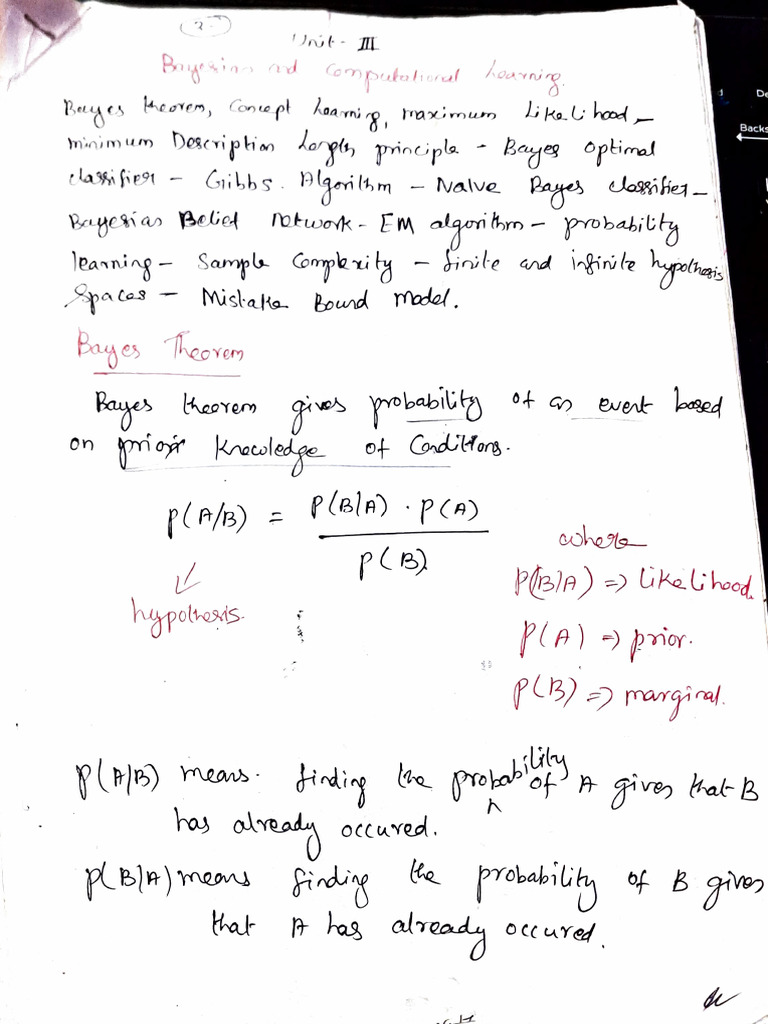 Unit - III
Bayesian and Computational Learning.
Bayes theorem, Concept Learning, maximum Likelihood, -
minimum Description Length principle - Bayes Optimal
classifier - Gibbs. Algorithm - Naive Bayes classifier -
Bayesian Belief Network - EM algorithm - probability
learning - Sample Complexity - finite and infinite hypothesis
Spaces - Mistake Bound model.
Bayes Theorem
Bayes theorem gives probability of an event based
on prior knowledge of Conditions.
P(A/B) = P(B/A) . P(A)
P(B)
where
hypothesis.
P(B/A) => Likelihood.
P(A) => prior.
P(B) => marginal.
P(A/B) means. finding the probability of A given that B
has already occured.
P(B/A) means finding the probability of B given
that A has already occured.
Backs